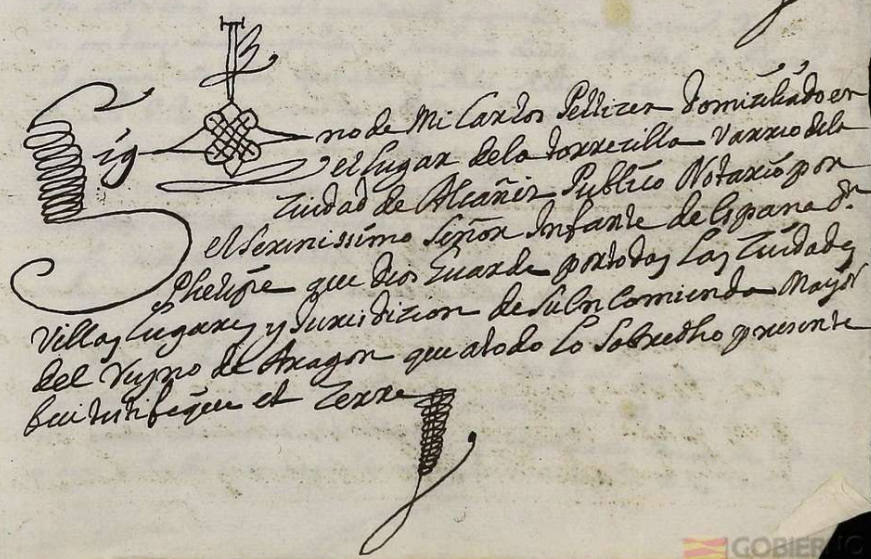 Sig no de Mi Carlos Pellizer domiziliado en
el Lugar dela torrezilla Varrio dela
Ziudad de Alcañiz Publico Notario por
el Serenissimo Señor Infante de España Dn.
Phelipe que Dios Guarde portodas Las Ziudades
Villas Lugares y Jurisdizion de Su Encomienda Mayor
del Reyno de Aragon que atodo Lo Sobredho presente
fui testifique et Zerre
GOBIERNO